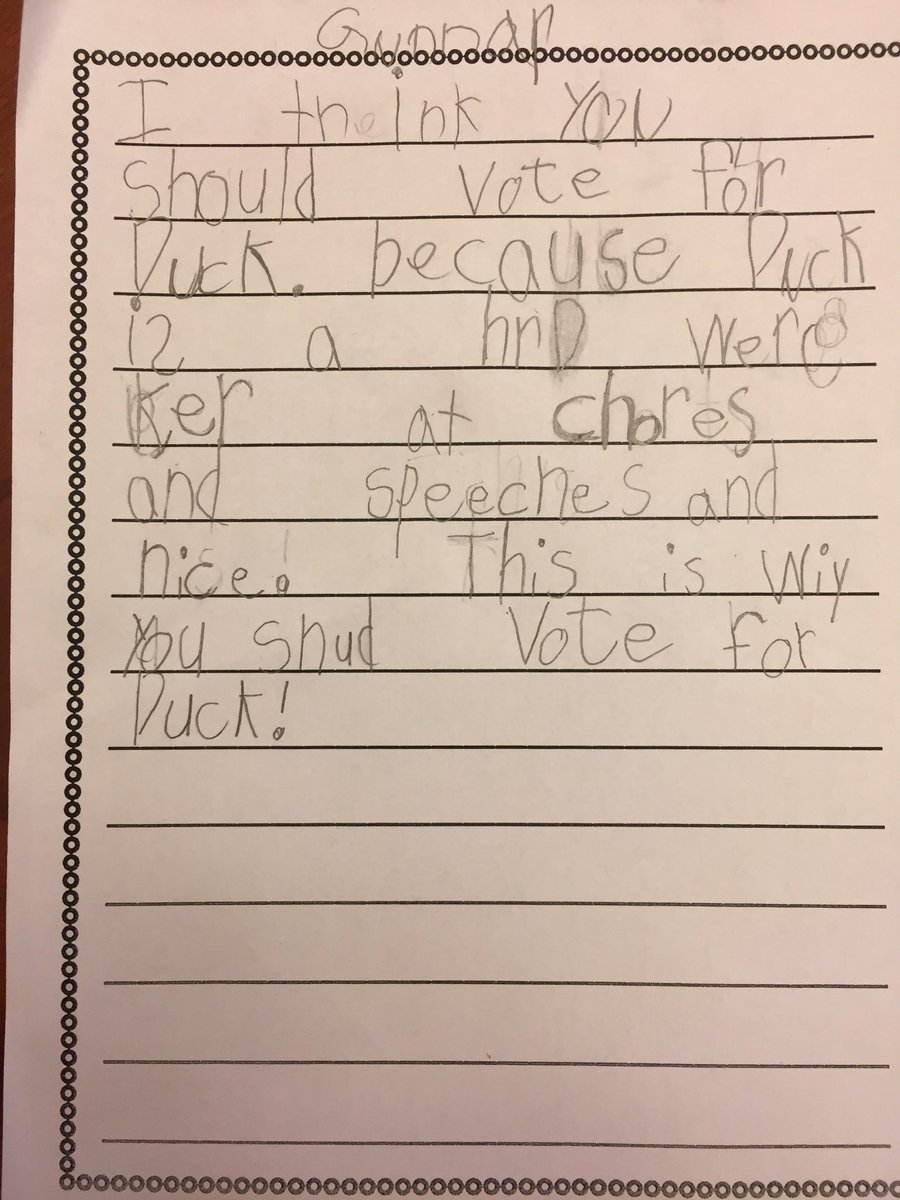 Gunnar
I think you
should vote for
Duck. because Duck
is a hrD were
Ker at chores
and speeches and
nice. This is wiy
you shud vote for
Duck!